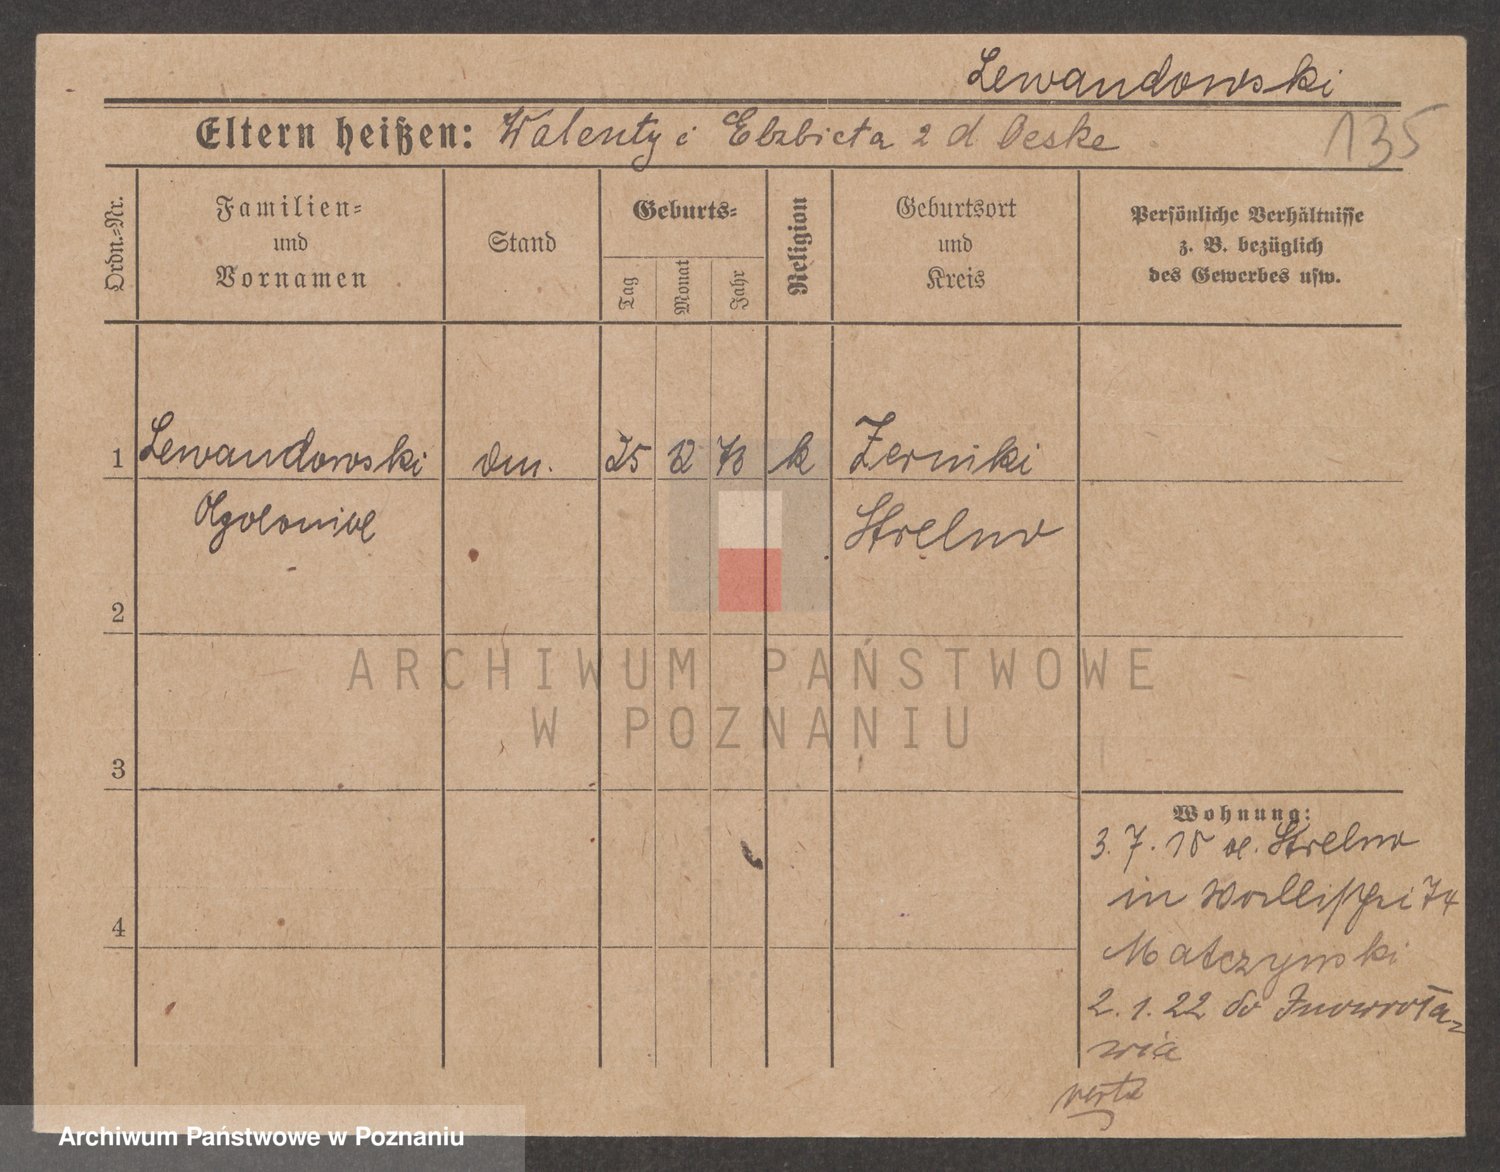 Lewandowski
Eltern heißen: Walenty i Elzbieta z d Deske
135
Ordn.-Nr.
Familien-
und
Vornamen
Stand
Geburts-
Tag
Monat
Jahr
Religion
Geburtsort
und
Kreis
Persönliche Verhältnisse
z. B. bezüglich
des Gewerbes usw.
1 Lewandowski 25 12 k Zerniki
Strelno
2
ARCHIWUM PAŃSTWOWE
W POZNANIU
3
Wohnung:
3. 7. 18 Strelno
in 74
4
Matczynski
2. 1. 22 do Inowrocła-
wia
Archiwum Państwowe w Poznaniu